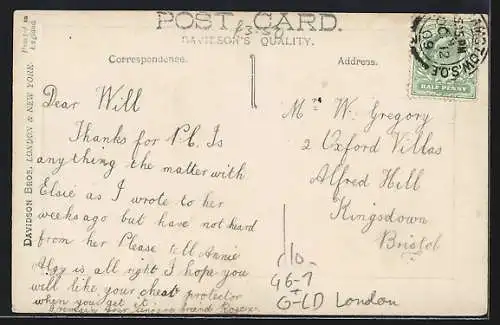 POST CARD.
£3.50
DAVIDSON'S QUALITY.
Printed in
England
Correspondence.
Address.
DAVIDSON BROS, LONDON & NEW YORK
HALF PENNY
S.O.E
OC 12
09
Dear Will
Thanks for P.C. Is
anything the matter with
Elsie as I wrote to her
weeks ago but have not heard
from her Please tell Annie
is all right I hope you
will like your chest protector
when you get it.
your friend
Mr W. Gregory
2 Oxford Villas
Alfred Hill
Kingsdown
Bristol
G6-7
London